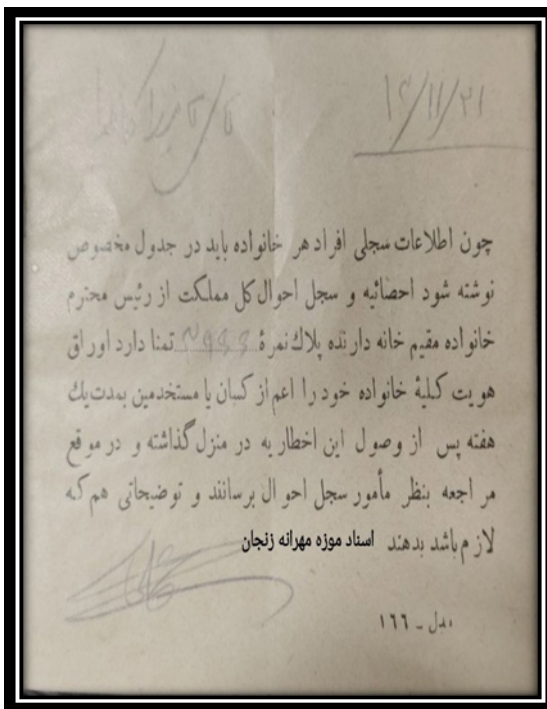 ۱۴/۱۱/۲۱
چون اطلاعات سجلی افراد هر خانواده باید در جدول مخصوص
نوشته شود احصائیه و سجل احوال کل مملکت از رئیس محترم
خانواده مقیم خانه دارنده پلاك نمرهٔ تمنا دارد اوراق
هویت کلیهٔ خانواده خود را اعم از کسان یا مستخدمین بمدت یك
هفته پس از وصول این اخطاریه در منزل گذاشته و در موقع
مراجعه بنظر مأمور سجل احوال برسانند و توضیحاتی هم که
لازم باشد بدهند اسناد موزه مهرانه زنجان
مدل ـ ۱۶۶